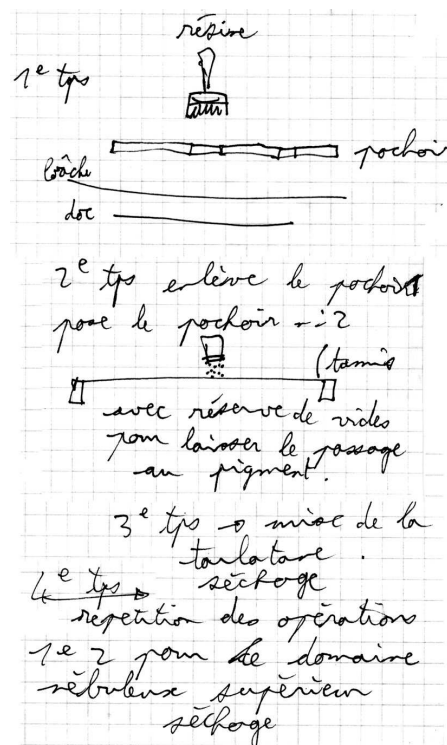 résine
1e tps
pochoir
bâche
doc
2e tps enlève le pochoir 1
pose le pochoir n:2
(tamis
avec réserve de vides
pour laisser le passage
au pigment.
3e tps → mise de la
tarlatane.
séchage
4e tps
repetition des opérations
1 e 2 pour le domaine
nébuleux supérieur
séchage